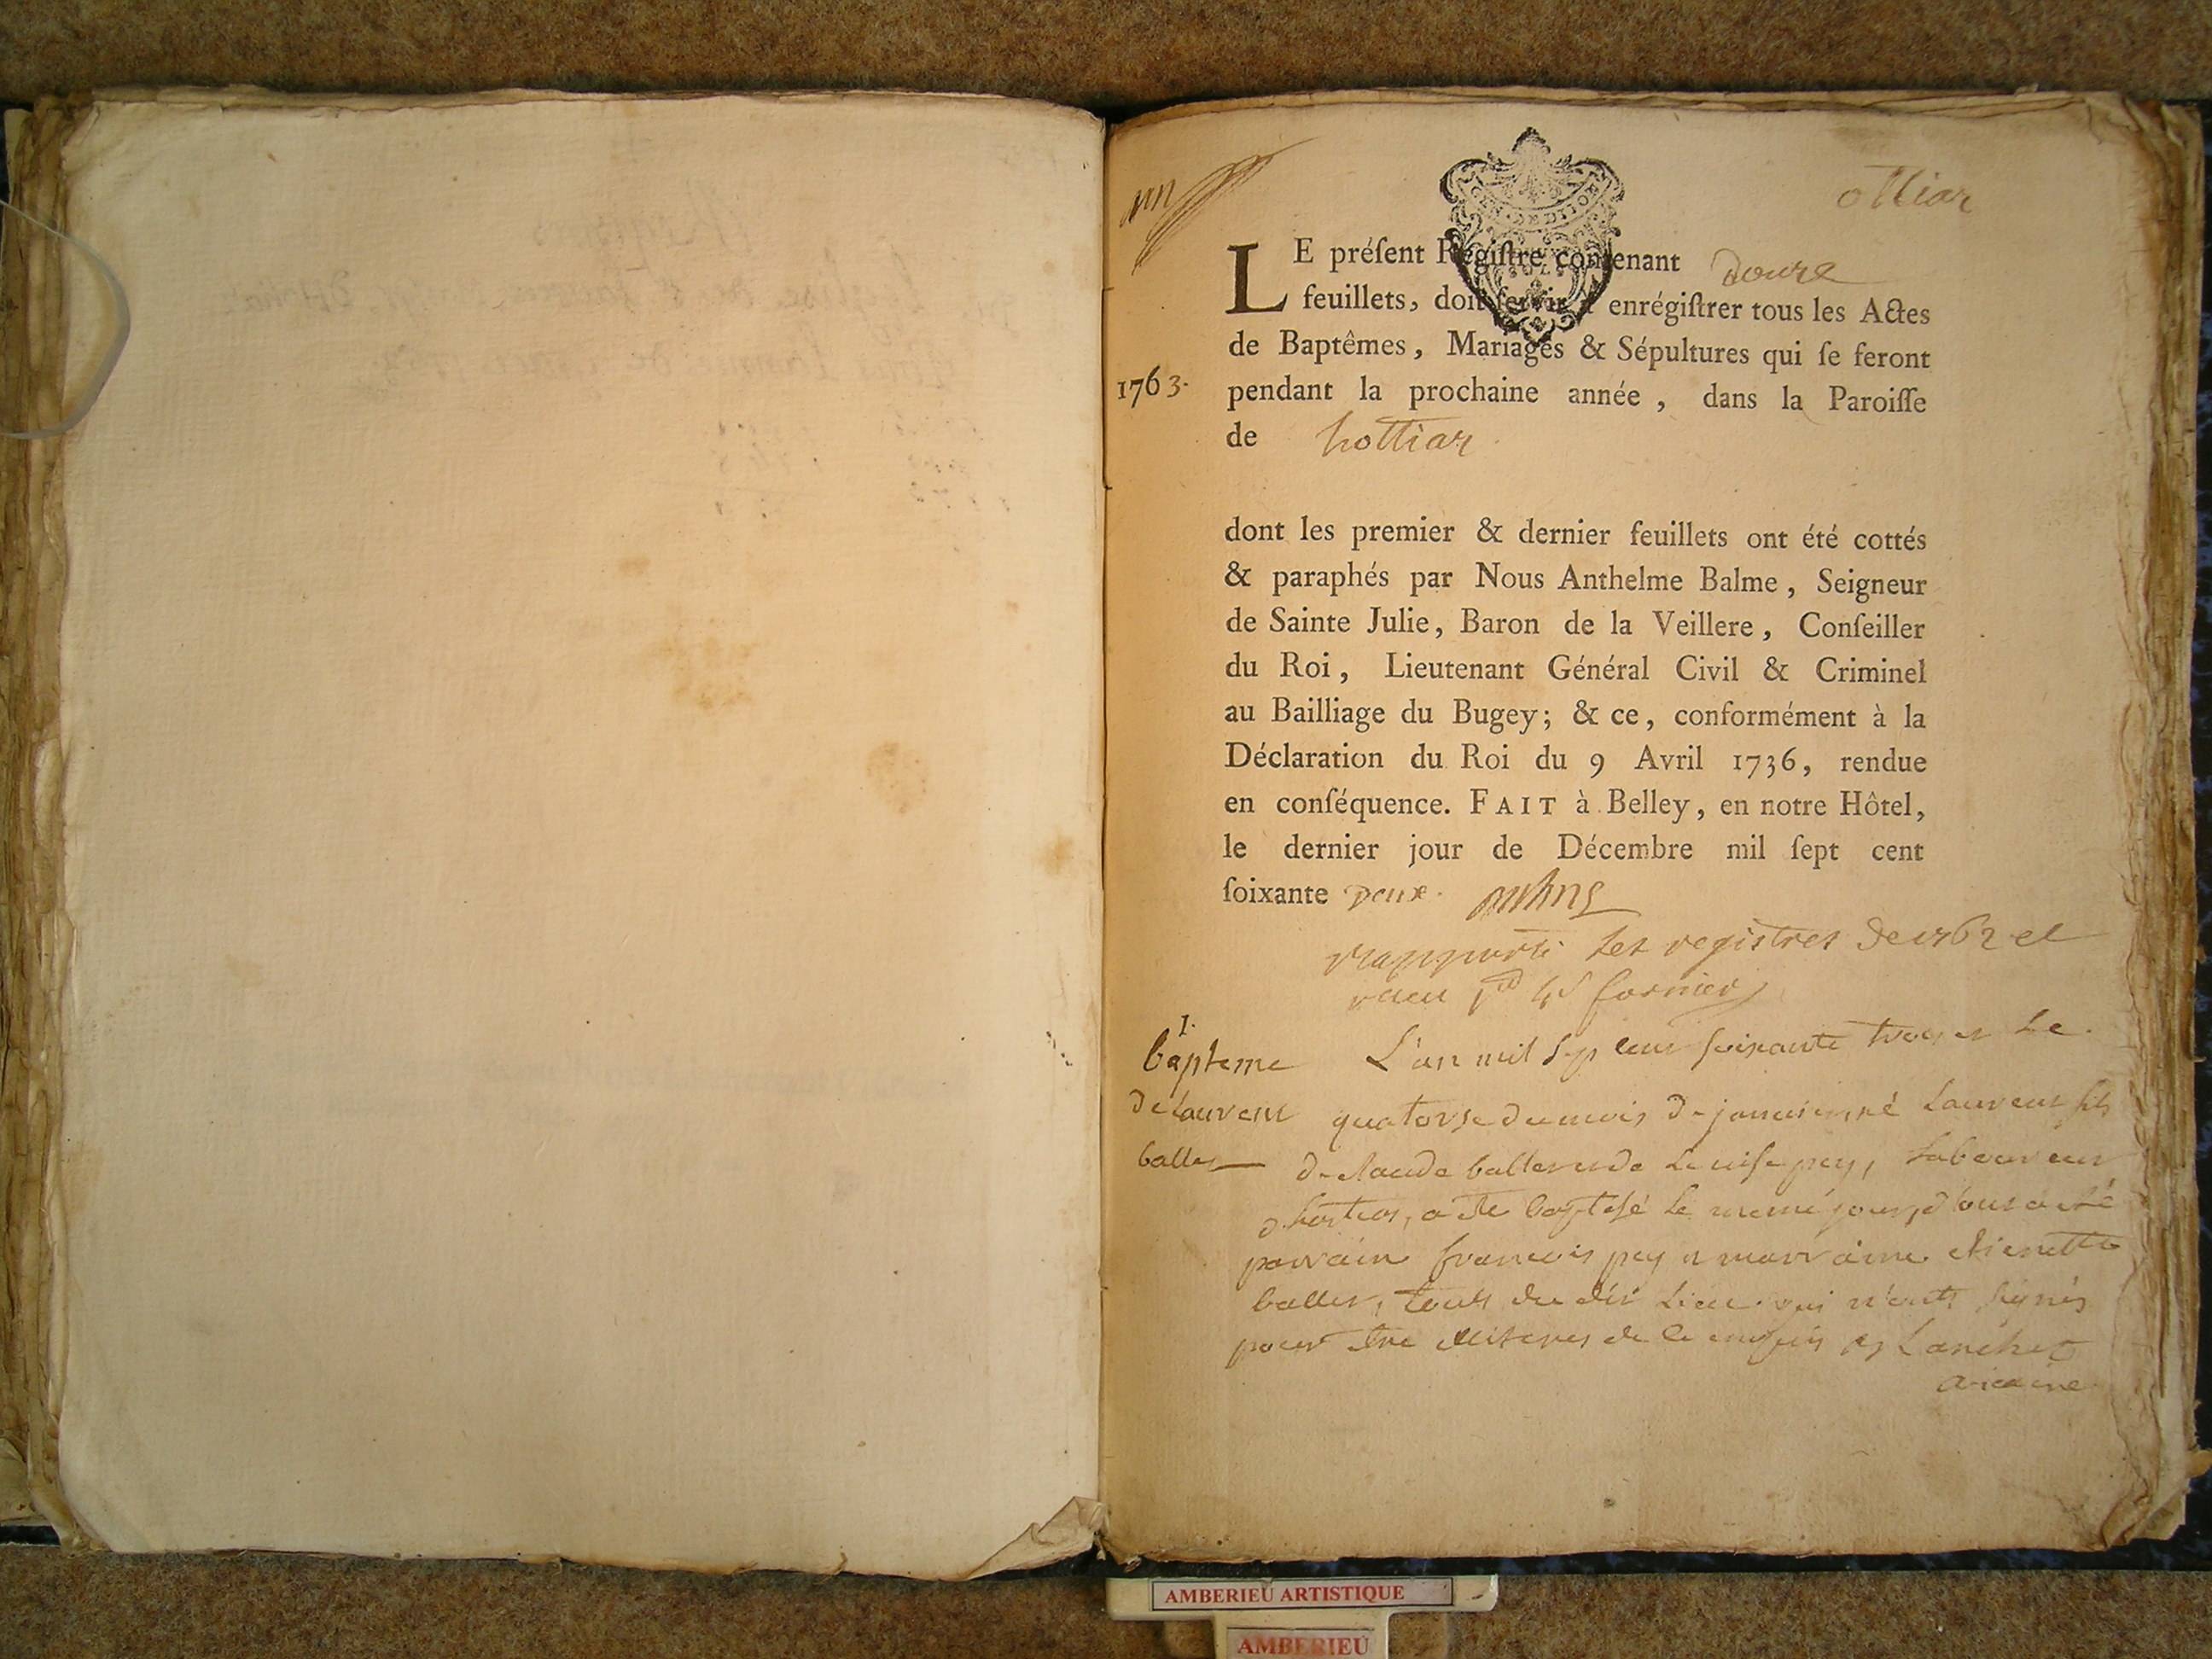 un
ottiar
GEN. DE DIJON
LE préſent Régiſtre contenant douze
feuillets, doit ſervir à enrégiſtrer tous les Actes
de Baptêmes, Mariages & Sépultures qui ſe feront
1763. pendant la prochaine année, dans la Paroiſſe
de hottiar
dont les premier & dernier feuillets ont été cottés
& paraphés par Nous Anthelme Balme, Seigneur
de Sainte Julie, Baron de la Veillere, Conſeiller
du Roi, Lieutenant Général Civil & Criminel
au Bailliage du Bugey; & ce, conformément à la
Déclaration du Roi du 9 Avril 1736, rendue
en conſéquence. FAIT à Belley, en notre Hôtel,
le dernier jour de Décembre mil ſept cent
ſoixante deux.
rapporté les registres de 1762 et
1.
bapteme
de laurent
ballet
L'an mil sept cent soixante trois et le
quatorse du mois de janvier est né Laurent fils
de claude ballet et de Louise pey, laboureur
d'hostias, a été baptisé le meme jour, dont a été
parrain francois pey et marraine etienette
ballet, tous du dit lieu qui n'ont signés
pour être illiterés de ce enquis Lanchet
vicaire
AMBERIEU ARTISTIQUE
AMBERIEU